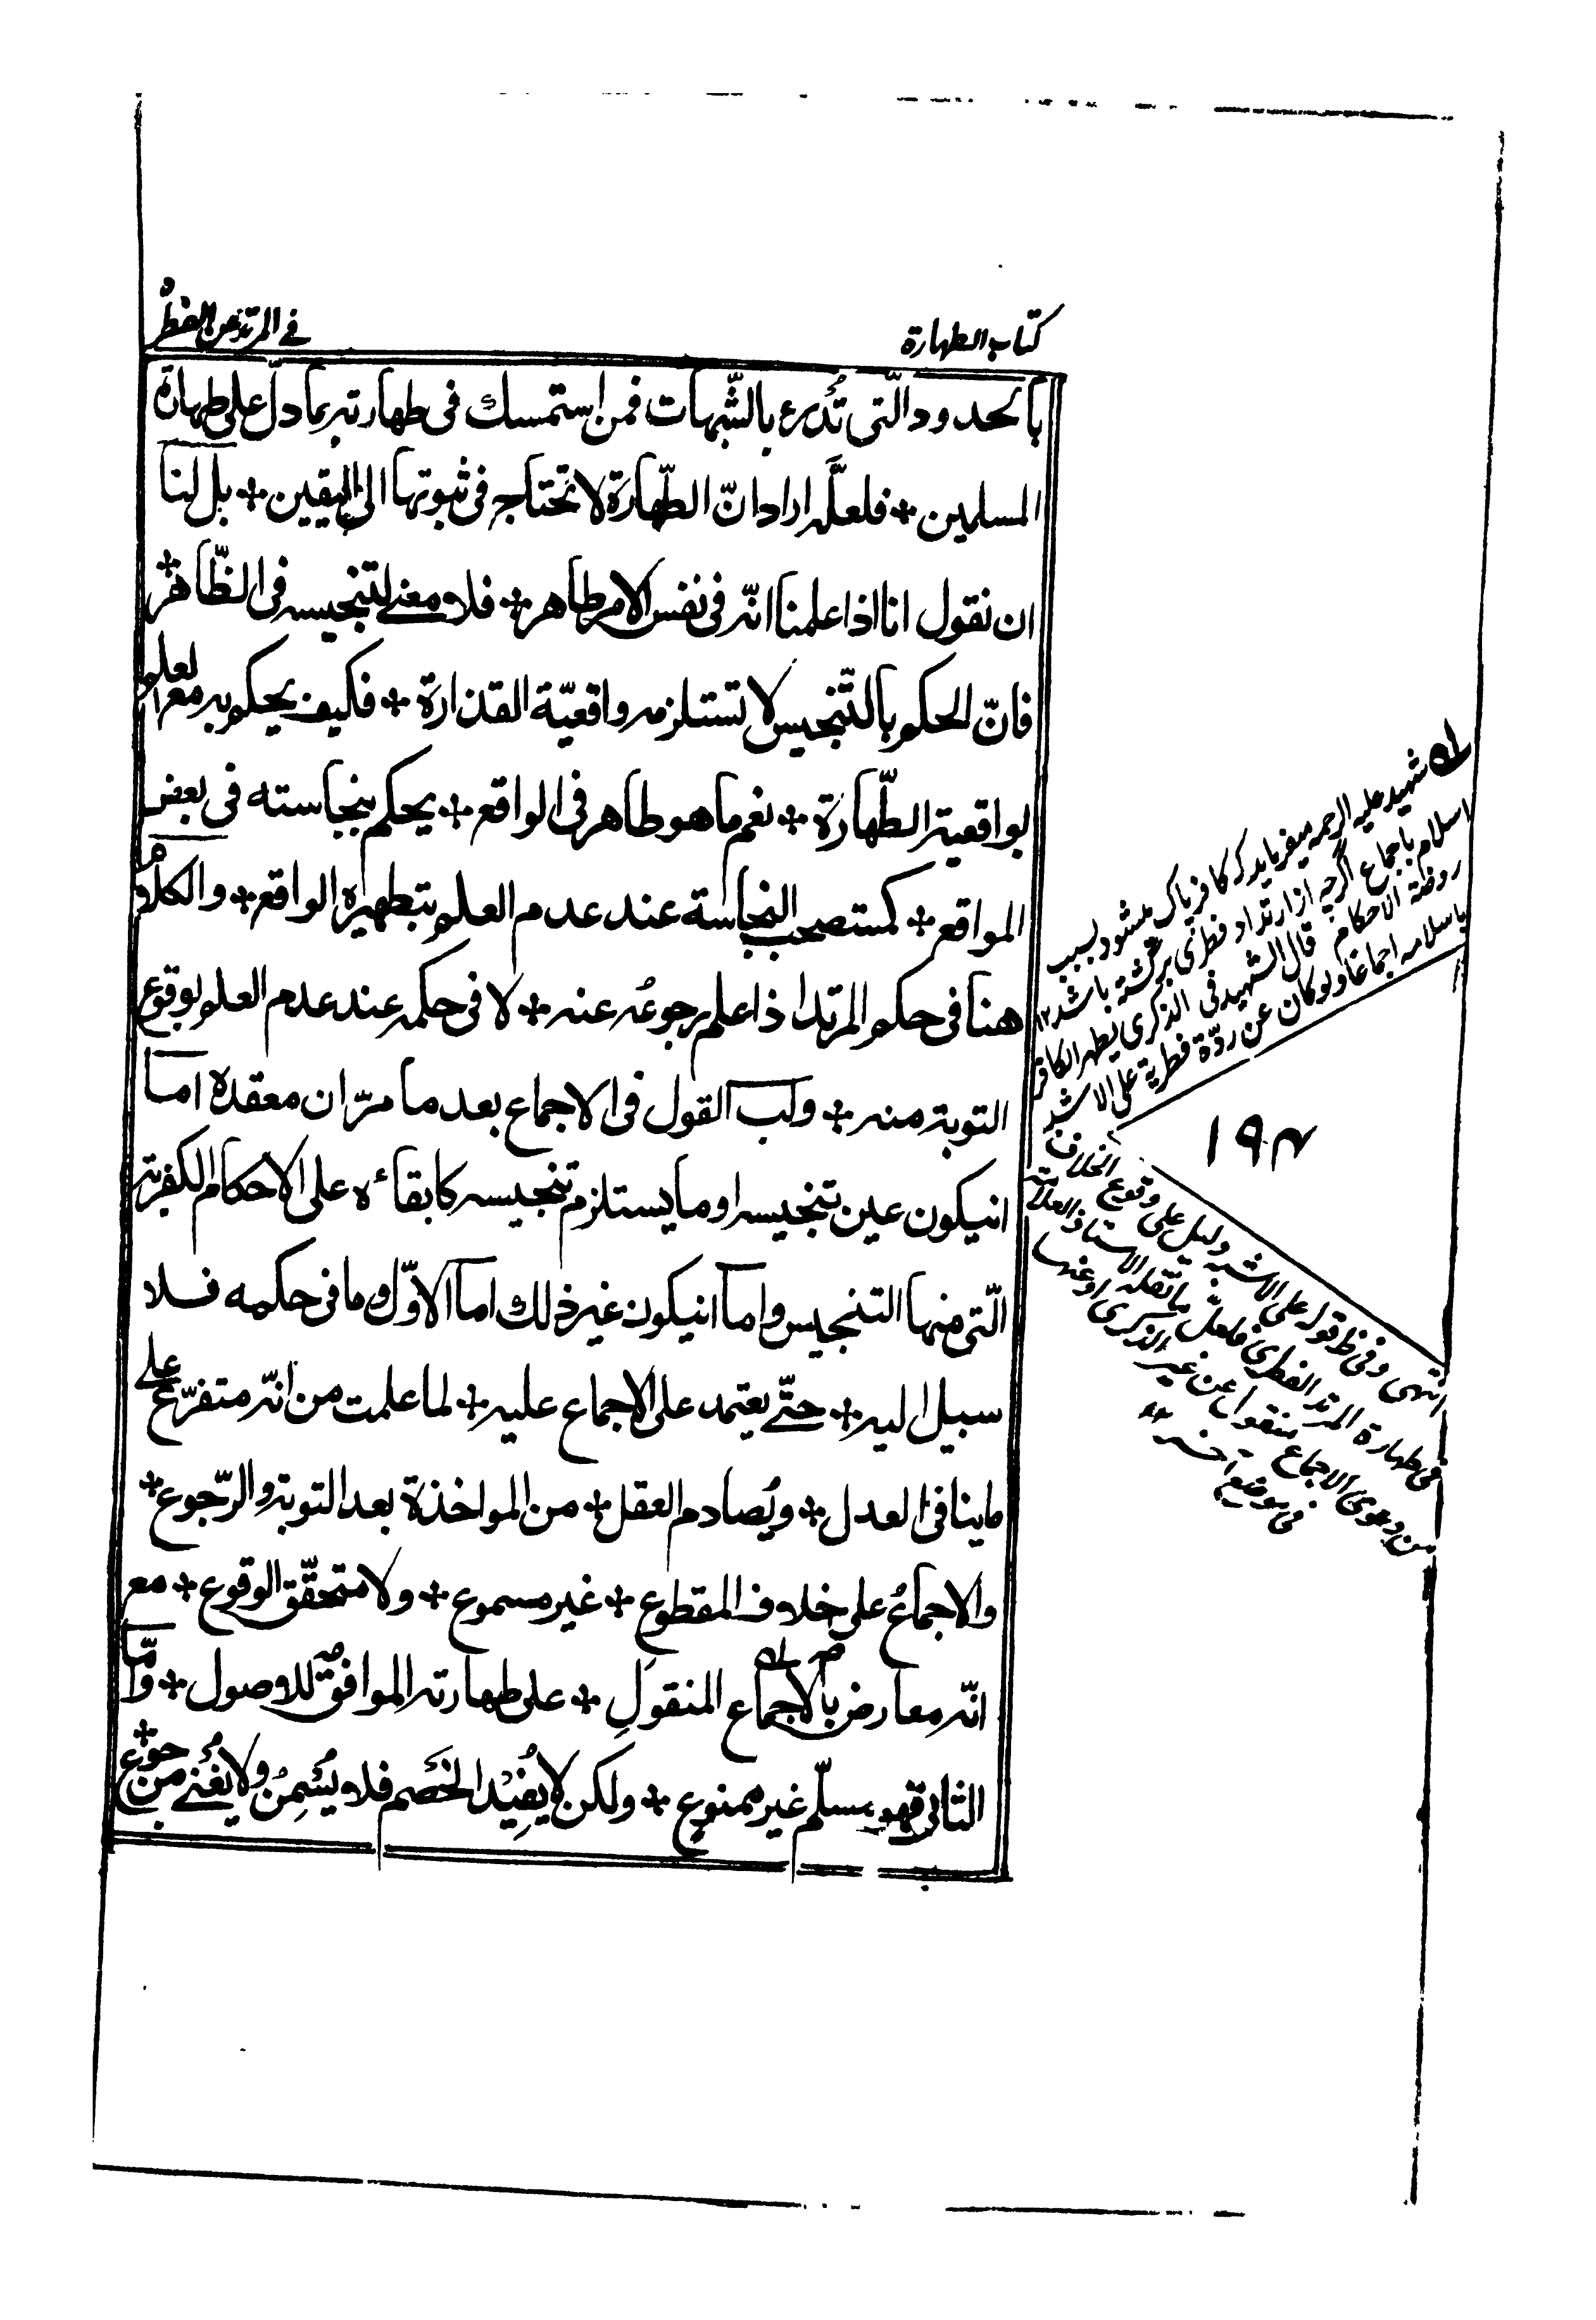 كتاب الطهارة
في المرتد عن الفطرة
بالحدود الّتى تُدرء بالشّبهات فمن استمسك فى طهارته بما دلّ على طهارة
المسلمين ؞ فلعلّه اراد انّ الطّهارة لا تحتاج فى ثبوتها الى اليقين ؞ بل لنا
ان نقول انا اذا علمنا انّه فى نفس الامر طاهر ؞ فلا معنى لتنجيسه فى الظّاهر ؞
فانّ الحكم بالتّنجيس لا تستلزمه واقعيّة القذارة ؞ فكيف يحكم به مع العلم
بواقعية الطّهارة ؞ نعم ما هو طاهر فى الواقع ؞ يحكم بنجاسته فى بعض
المواقع ؞ كمستصحب النجاسة عند عدم العلم بتطهيره الواقع ؞ والكلام
هنا فى حكم المرتد اذا علم رجوعُه عنه ؞ لا فى حكمه عند عدم العلم بوقوع
التوبة منه ؞ ولب القول فى الاجماع بعد ما مرّ ان معقده اما
انيكون عين تنجيسه او ما يستلزم تنجيسه كابقاءه على الاحكام الكفرية
الّتى منها التنجيس واما انيكون غير ذلك اما الاوّل وما فى حكمه فلا
سبيل اليه ؞ حتّى يعتمد على الاجماع عليه ؞ لما علمت من انّه متفرّع على
ما ينافى العدل ؞ ويُصادم العقل ؞ من المواخذة بعد التوبة والرّجوع ؞
والاجماعُ على خلاف المقطوع ؞ غير مسموع ؞ ولا متحقّق الوقوع ؞ مع
انّه معارض بالاجماع المنقولِ ؞ على طهارته الموافق للاصول ؞ وامّا
الثانى فهو مسلّم غير ممنوع ؞ ولكن لا يُفِيْد الخَصم فلا يُسْمِنُ ولا يُغنى من جوع ؞
شهيد عليه الرحمه ميفرمايد كه كافر پاك ميشود بسبب
اسلام باجماع اگرچه از ارتداد فطرى برگشته باشد ١٢
روضة الاحكام قال الشهيد فى الذكرى يطهر الكافر
باسلامه اجماعا ولو كان عن ردّة فطرية على الاشبه
١٩٨
انتهى وفى قوله على الاشبه دليل على وقوع الخلاف
فى طهارة المرتد الفطرى فلعلّ ما نقله الاستاذ العلامة
من دعوى الاجماع منقولا عن غير الذكرى او عنها
فى موضع اخر ١٢